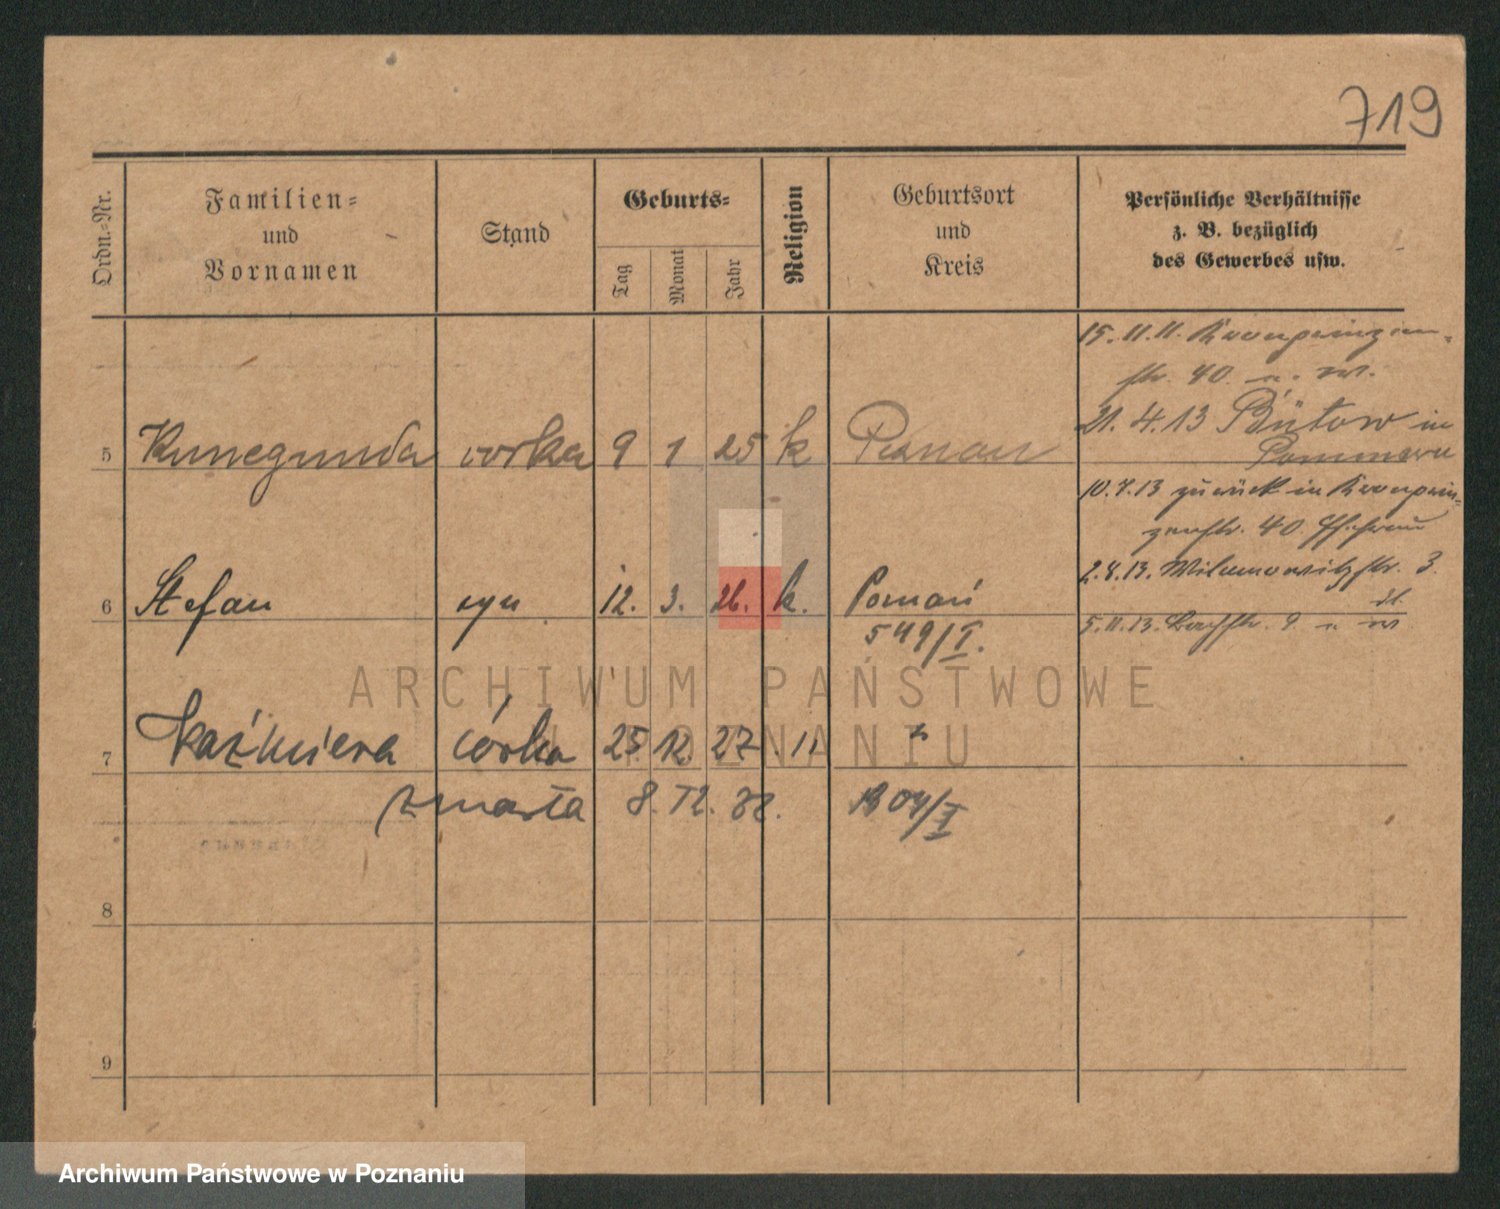 719
Ordn.-Nr.
Familien-
und
Vornamen
Stand
Geburts-
Tag
Monat
Jahr
Religion
Geburtsort
und
Kreis
Persönliche Verhältnisse
z. B. bezüglich
des Gewerbes usw.
15.11.11. Kronprinzen-
str. 40
21.4.13 Bütow in
Pommern
5 Kunegunda corka 9 1 25 k Poznań
10.7.13 zurück in Kronprin-
zenstr. 40
2.8.13. Wilamowitzstr. 3.
6 Stefan syn 12. 3. 26. k. Poznań
549/I.
5.11.13. 9
ARCHIWUM PAŃSTWOWE
W POZNANIU
7 Kaźmiera córka 25 12 27 "
zmarła 8. 12.
8
9
Archiwum Państwowe w Poznaniu